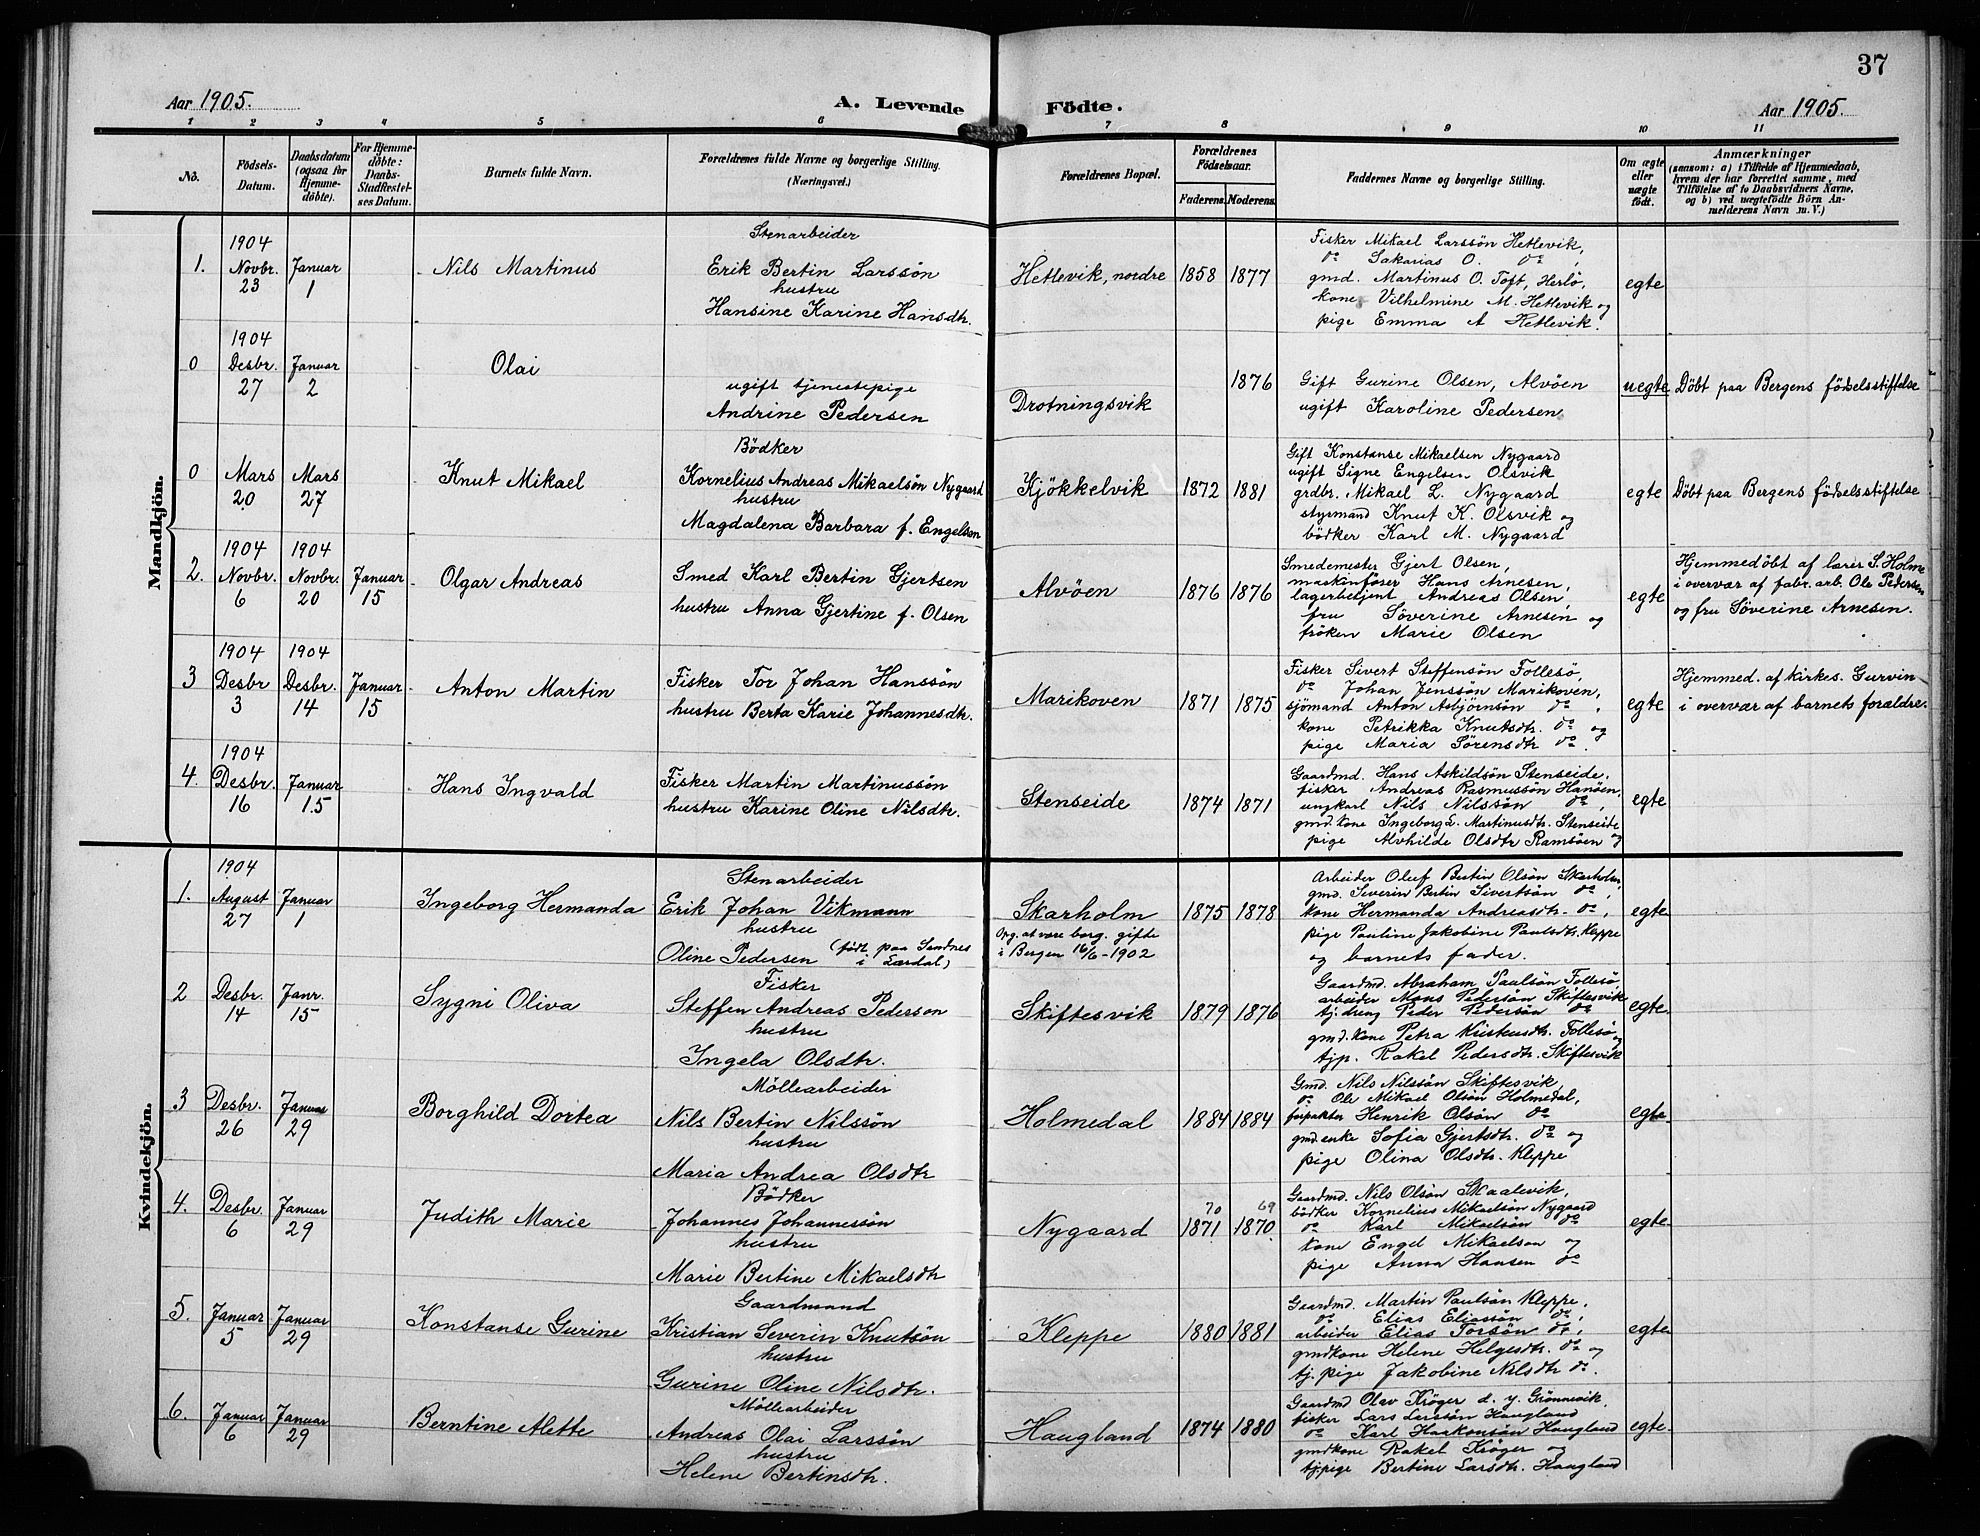 37
Aar 1905.
A. Levende Födte.
Aar 1905.
1 2 3 4 5 6 7 8 9 10 11
No.
Födsels-Datum.
Daabsdatum (ogsaa for Hjemme-döbte).
For Hjemme-döbte: Daabs-Stadfæstel-ses Datum.
Barnets fulde Navn.
Forældrenes fulde Navne og borgerlige Stilling.
(Næringsvei.)
Forældrenes Bopæl.
Forældrenes Födselsaar.
Faderens. Moderens.
Faddernes Navne og borgerlige Stilling.
Om ægte eller uægte födt.
Anmærkninger
(saasom: a) i Tilfælde af Hjemmedaab,
hvem der har forrettet samme, med
Tilföielse af to Daabsvidners Navne,
og b) ved uægtefödte Börn An-
melderens Navn m. V.)
Mandkjön.
1.
1904
Novbr.
23
Januar
1
Nils Martinus
Stenarbeider
Erik Bertin Larssön
hustru
Hansine Karine Hansdtr.
Hetlevik, nordre
1858 1877
Fisker Mikael Larssön Hetlevik,
do Sakarias O. do,
gmd. Martinus O. Toft, Herlö,
kone Vilhelmine M. Hetlevik og
pige Emma A Hetlevik.
egte
0
1904
Desbr.
27
Januar
2
Olai
ugift tjenestepige
Andrine Pedersen
Drotningsvik
1876
Gift Gurine Olsen, Alvöen
ugift Karoline Pedersen
uegte
Döbt paa Bergens födselsstiftelse
0
Mars
20
Mars
27
Knut Mikael
Bödker
Kornelius Andreas Mikaelsön Nygaard
hustru
Magdalena Barbara f. Engelsen
Kjökkelvik
1872 1881
Gift Konstanse Mikaelsen Nygaard
ugift Signe Engelsen Olsvik
grdbr. Mikael L. Nygaard
styrmand Knut K. Olsvik og
bödker Karl M. Nygaard
egte
Döbt paa Bergens födselsstiftelse
2.
1904
Novbr.
6
1904
Novbr.
20
Januar
15
Olgar Andreas
Smed Karl Bertin Gjertsen
hustru Anna Gjertine f. Olsen
Alvöen
1876 1876
Smedemester Gjert Olsen,
maskinförer Hans Arnesen,
lagerbetjent Andreas Olsen,
fru Söverine Arnesen og
fröken Marie Olsen
egte
Hjemmedöbt af lærer S. Holme
i overvær af fabr. arb. Ole Pedersen
og fru Söverine Arnesen.
3
1904
Desbr
3
1904
Desbr.
14
Januar
15
Anton Martin
Fisker Tor Johan Hanssön
hustru Berta Karie Johannesdtr.
Marikoven
1871 1875
Fisker Sivert Steffensön Follesö
do Johan Jenssön Marikoven,
sjömand Anton Asbjörnsön do,
kone Petrikka Knutsdtr. do og
pige Maria Sörensdtr do.
egte
Hjemmed. af kirkes. Gurvin
i overvær af barnets forældre.
4.
1904
Desbr.
16
Januar
15
Hans Ingvald
Fisker Martin Martinussön
hustru Karine Oline Nilsdtr.
Stenseide
1874 1871
Gaardmd. Hans Askildsön Stenseide,
fisker Andreas Rasmussön Hanöen,
ungkarl Nils Nilssön do,
gmd. kone Ingeborg L. Martinusdtr. Stenseide
pige Alvhilde Olsdtr Ramsöen og
egte
Kvindekjön.
1.
1904
August
27
Januar
1
Ingeborg Hermanda
Stenarbeider
Erik Johan Vikmann
hustru
Oline Pedersen (födt paa Sandnes i Lærdal)
Skarholm
Opg. at være borg. gifte
i Bergen 16/6-1902
1875 1878
Arbeider Oluf Bertin Olsön Skarholm,
gmd. Severin Bertin Sivertsön do,
kone Hermanda Andreasdtr. do,
pige Pauline Jakobine Paulsdtr. Kleppe
og barnets fader.
egte
2
Desbr.
14
Janr.
15
Sygni Oliva
Fisker
Steffen Andreas Pederson
hustru
Ingela Olsdtr.
Skiftesvik
1879 1876
Gaardmd. Abraham Paulsön Follesö,
arbeider Mons Pedersön Skiftesvik
tj. dreng Peder Pedersön do
gmd. kone Petra Kristensdtr. Follesö og
tjp. Rakel Pedersdtr. Skiftesvik
egte
3
Desbr.
26
Januar
29
Borghild Dortea
Möllearbeider
Nils Bertin Nilssön
hustru
Maria Andrea Olsdtr
Holmedal
1884 1884
Gmd. Nils Nilssön Skiftesvik,
do Ole Mikael Olsön Holmedal,
forpakter Henrik Olsön do
gmd. enke Sofia Gjertsdtr. do og
pige Olina Olsdtr. Kleppe
egte
4.
Desbr.
6
Januar
29
Judith Marie
Bödker
Johannes Johannessön
hustru
Marie Bertine Mikaelsdtr
Nygaard
70 69
1871 1870
Gaardmd. Nils Olsön Skaalevik,
bödker Kornelius Mikaelsön Nygaard
do Karl Mikaelsön do
kone Engel Mikaelson og
pige Anna Hansen do
egte
5.
Januar
5
Januar
29
Konstanse Gurine
Gaardmand
Kristian Severin Knutsön
hustru
Gurine Oline Nilsdtr.
Kleppe
1880 1881
Gaardmd. Martin Paulsön Kleppe,
do Elias Eliassön do,
arbeider Elias Torsön do,
gmdkone Helene Helgesdtr. do og
tj. pige Jakobine Nilsdtr do
egte
6.
Januar
6
Januar
29
Berntine Alette
Möllearbeider
Andreas Olai Larssön
hustru
Helene Bertinsdtr.
Haugland
1874 1880
Gaardmd Olav Kröger d. y. Grönnevik,
fisker Lars Larssön Haugland
do Karl Haakonsön Haugland
gmdkone Rakel Kröger og
tj. pige Bertine Larsdtr. Haugland
egte